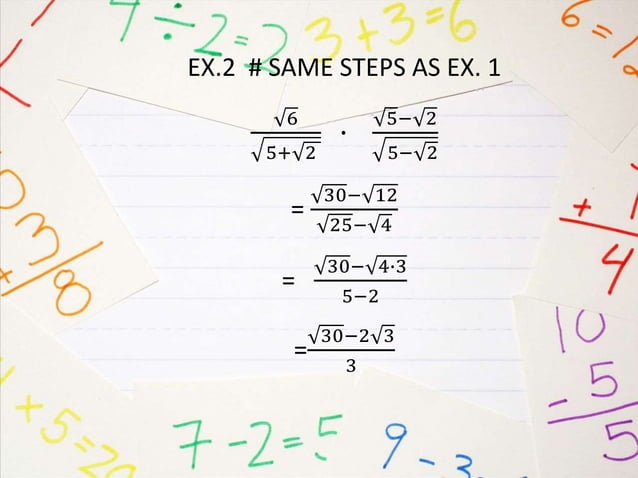 4÷2=2 3+3=6 6=12
EX.2 # SAME STEPS AS EX. 1
√6/√(5+√2) · (√5−√2)/√(5−√2)
= (√30−√12)/(√25−√4)
= (√30−√4·3)/(5−2)
=(√30−2√3)/3
+
4
3/8
10
-5
5
+5=20
7-2=5 9-3